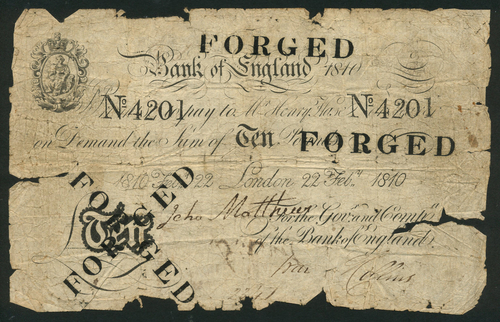 FORGED
Bank of England 1810
No 4201 pay to Mr Henry Hase No 4201
on Demand the Sum of Ten FORGED
1810 Feby 22 London 22 Feby 1810
FORGED
Jcho Matthews For the Govr and Compa
Ten
of the Bank of England
FORGED